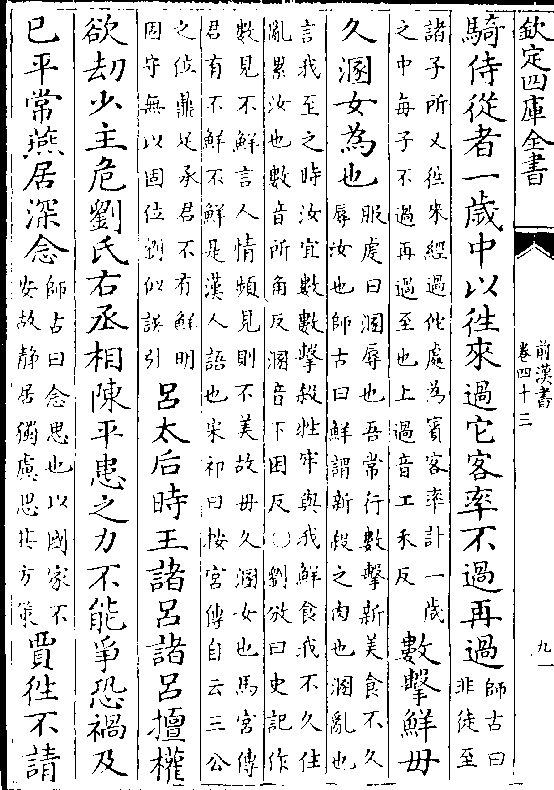 欽定四庫全書
前漢書
卷四十三
九
騎侍從者一歲中以徃來過它客率不過再過
師古曰
非徒至
諸子所又徃來經過佗處為賓客率計一歲
之中每子不過再過至也上過音工禾反
數擊鮮毋
久溷女為也
服虔曰溷辱也吾常行數擊新美食不久
辱汝也師古曰鮮謂新殺之肉也溷亂也
言我至之時汝宜數數擊殺牲牢與我鮮食我不久住
亂累汝也數音所角反溷音下困反○劉攽曰史記作
數見不鮮言人情頻見則不美故毋久溷女也馬宮傳
君有不鮮不鮮是漢人語也宋祁曰按宮傳自云三公
之位鼎足承君不有鮮明
固守無以固位劉似誤引
呂太后時王諸呂諸呂擅權
欲劫少主危劉氏右丞相陳平患之力不能爭恐禍及
已平常燕居深念
師古曰念思也以國家不
安故静居獨慮思其方策
賈徃不請